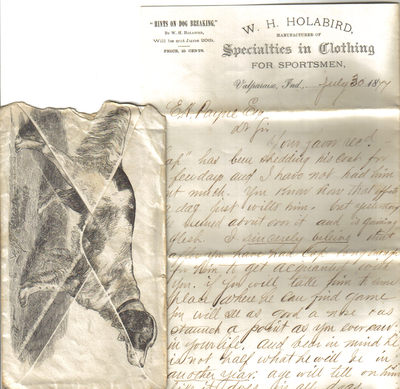 "HINTS ON DOG BREAKING,"
By W. H. HOLABIRD,
Will be out June 20th.
PRICE, 25 CENTS.
W. H. HOLABIRD,
MANUFACTURER OF
Specialties in Clothing
FOR SPORTSMEN,
Valparaiso, Ind., July 30 1877
E.A. Payne Esq
Dr Sir
Your favor recd
has been shedding his coat for
few days and I have not had him
out much. You know how that affects
dog just wilts him. but yesterday
about over it and is gaining
flesh. I sincerely believe that
after you have had
for him to get acquainted with
you. if you will take him to some
place where he can find game
you will see as good a nose as
staunch a point as you ever saw
in your life. and bear in mind he
is not half what he will be in
another year. age will tell on him
like it does on all dogs